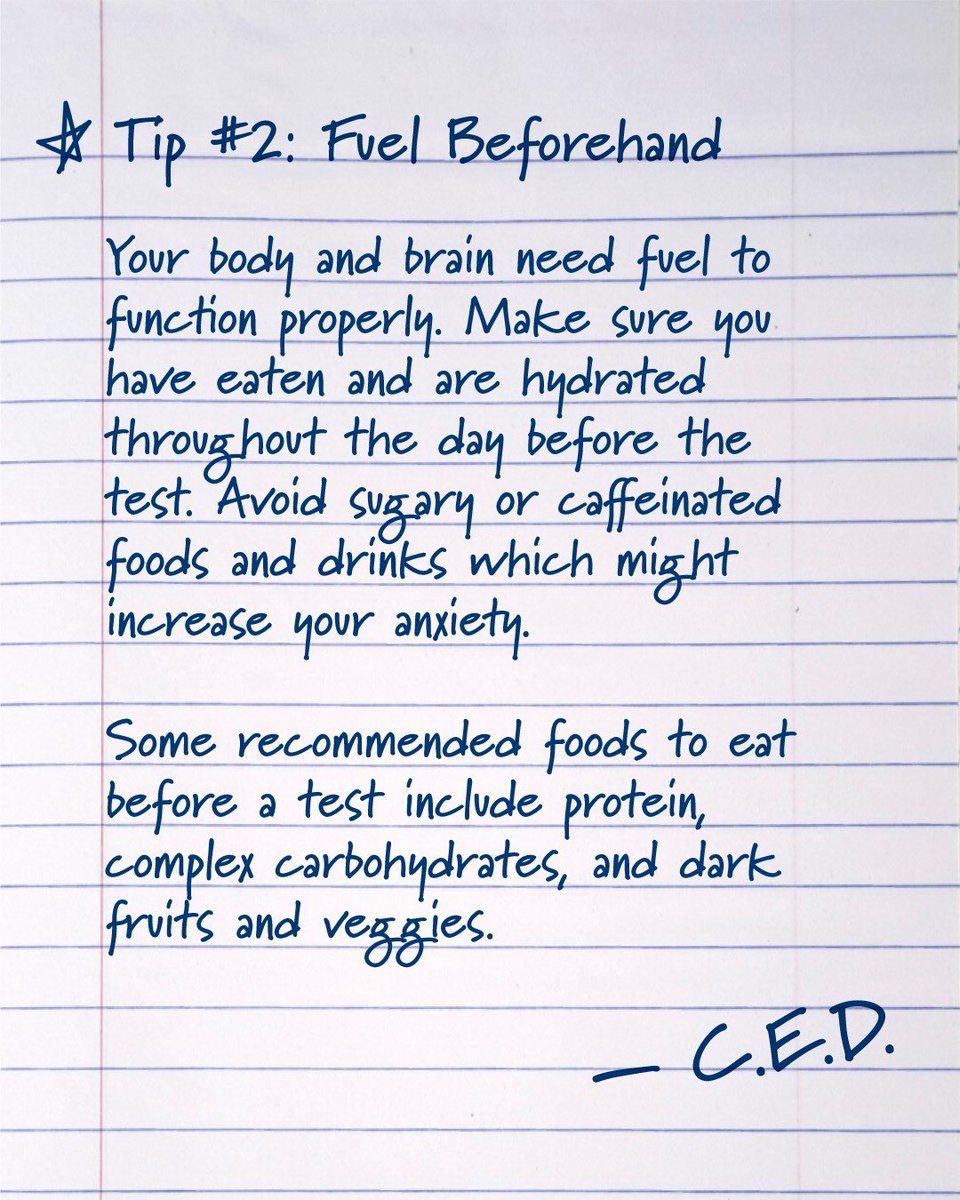 ☆ Tip #2: Fuel Beforehand
Your body and brain need fuel to
function properly. Make sure you
have eaten and are hydrated
throughout the day before the
test. Avoid sugary or caffeinated
foods and drinks which might
increase your anxiety.
Some recommended foods to eat
before a test include protein,
complex carbohydrates, and dark
fruits and veggies.
— C.E.D.